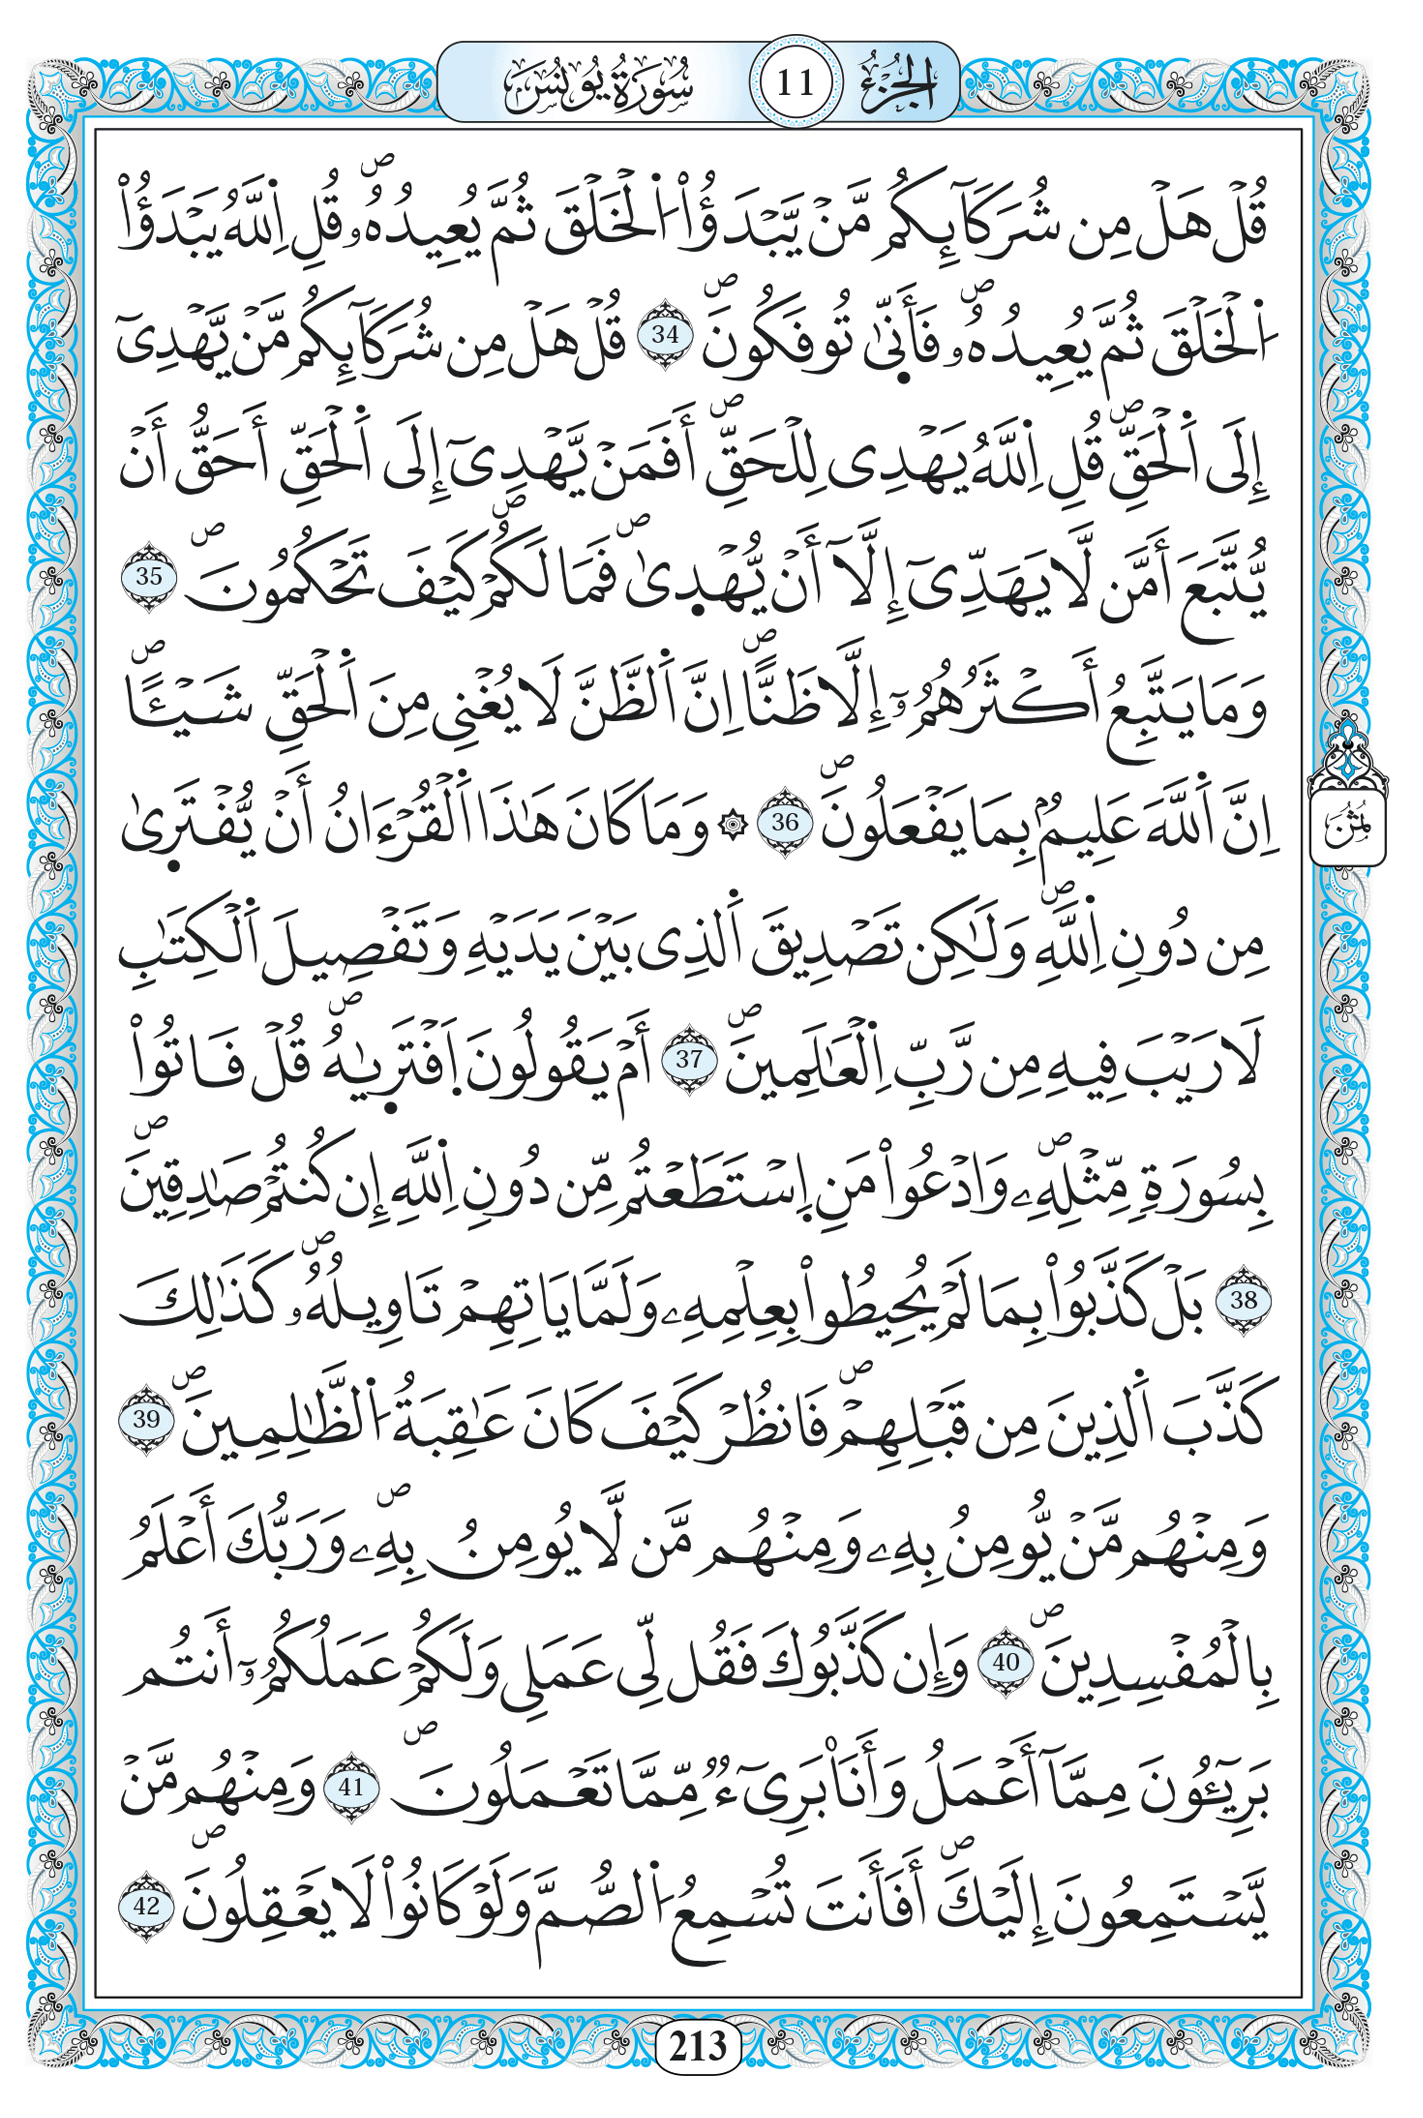 الجزء 11 سورة يونس
قُلْ هَلْ مِن شُرَكَآئِكُم مَّنْ يَّبْدَؤُاْ اُ۬لْخَلْقَ ثُمَّ يُعِيدُهُۥۖ قُلِ اِ۬للَّهُ يَبْدَؤُاْ
اُ۬لْخَلْقَ ثُمَّ يُعِيدُهُۥۖ فَأَنّ۪ىٰ تُوفَكُونَۖ 34 قُلْ هَلْ مِن شُرَكَآئِكُم مَّنْ يَّهْدِىٓ
إِلَى اَ۬لْحَقِّۖ قُلِ اِ۬للَّهُ يَهْدِى لِلْحَقِّۖ أَفَمَنْ يَّهْدِىٓ إِلَى اَ۬لْحَقِّ أَحَقُّ أَنْ
يُّتَّبَعَ أَمَّن لَّا يَهَدِّىٓ إِلَّآ أَنْ يُّهْد۪ىٰۖ فَمَا لَكُمْۖ كَيْفَ تَحْكُمُونَۖ 35
وَمَا يَتَّبِعُ أَكْثَرُهُمُۥٓ إِلَّا ظَنًّاۖ اِنَّ اَ۬لظَّنَّ لَا يُغْنِى مِنَ اَ۬لْحَقِّ شَيْـًٔاۖ
اِنَّ اَ۬للَّهَ عَلِيمُۢ بِمَا يَفْعَلُونَۖ 36 ۞ وَمَا كَانَ هَٰذَا اَ۬لْقُرْءَانُ أَنْ يُّفْتَر۪ىٰ
مِن دُونِ اِ۬للَّهِۖ وَلَٰكِن تَصْدِيقَ اَ۬لذِى بَيْنَ يَدَيْهِ وَتَفْصِيلَ اَ۬لْكِتَٰبِ
لَا رَيْبَ فِيهِ مِن رَّبِّ اِ۬لْعَٰلَمِينَۖ 37 أَمْ يَقُولُونَ اَ۪فْتَر۪يٰهُۖ قُلْ فَاتُواْ
بِسُورَةٖ مِّثْلِهِۦۖ وَادْعُواْ مَنِ اِ۪سْتَطَعْتُم مِّن دُونِ اِ۬للَّهِ إِن كُنتُمْ صَٰدِقِينَۖ
38 بَلْ كَذَّبُواْ بِمَا لَمْ يُحِيطُواْ بِعِلْمِهِۦ وَلَمَّا يَاتِهِمْ تَاوِيلُهُۥۖ كَذَٰلِكَ
كَذَّبَ اَ۬لذِينَ مِن قَبْلِهِمْۖ فَانظُرْ كَيْفَ كَانَ عَٰقِبَةُ اُ۬لظَّٰلِمِينَۖ 39
وَمِنْهُم مَّنْ يُّومِنُ بِهِۦ وَمِنْهُم مَّن لَّا يُومِنُ بِهِۦۖ وَرَبُّكَ أَعْلَمُ
بِالْمُفْسِدِينَۖ 40 وَإِن كَذَّبُوكَ فَقُل لِّى عَمَلِى وَلَكُمْ عَمَلُكُمُۥٓ أَنتُم
بَرِيٓـُٔونَ مِمَّآ أَعْمَلُ وَأَنَا۠ بَرِىٓءٞ مِّمَّا تَعْمَلُونَۖ 41 وَمِنْهُم مَّنْ
يَّسْتَمِعُونَ إِلَيْكَۖ أَفَأَنتَ تُسْمِعُ اُ۬لصُّمَّ وَلَوْ كَانُواْ لَا يَعْقِلُونَۖ 42
ثُمُن
213